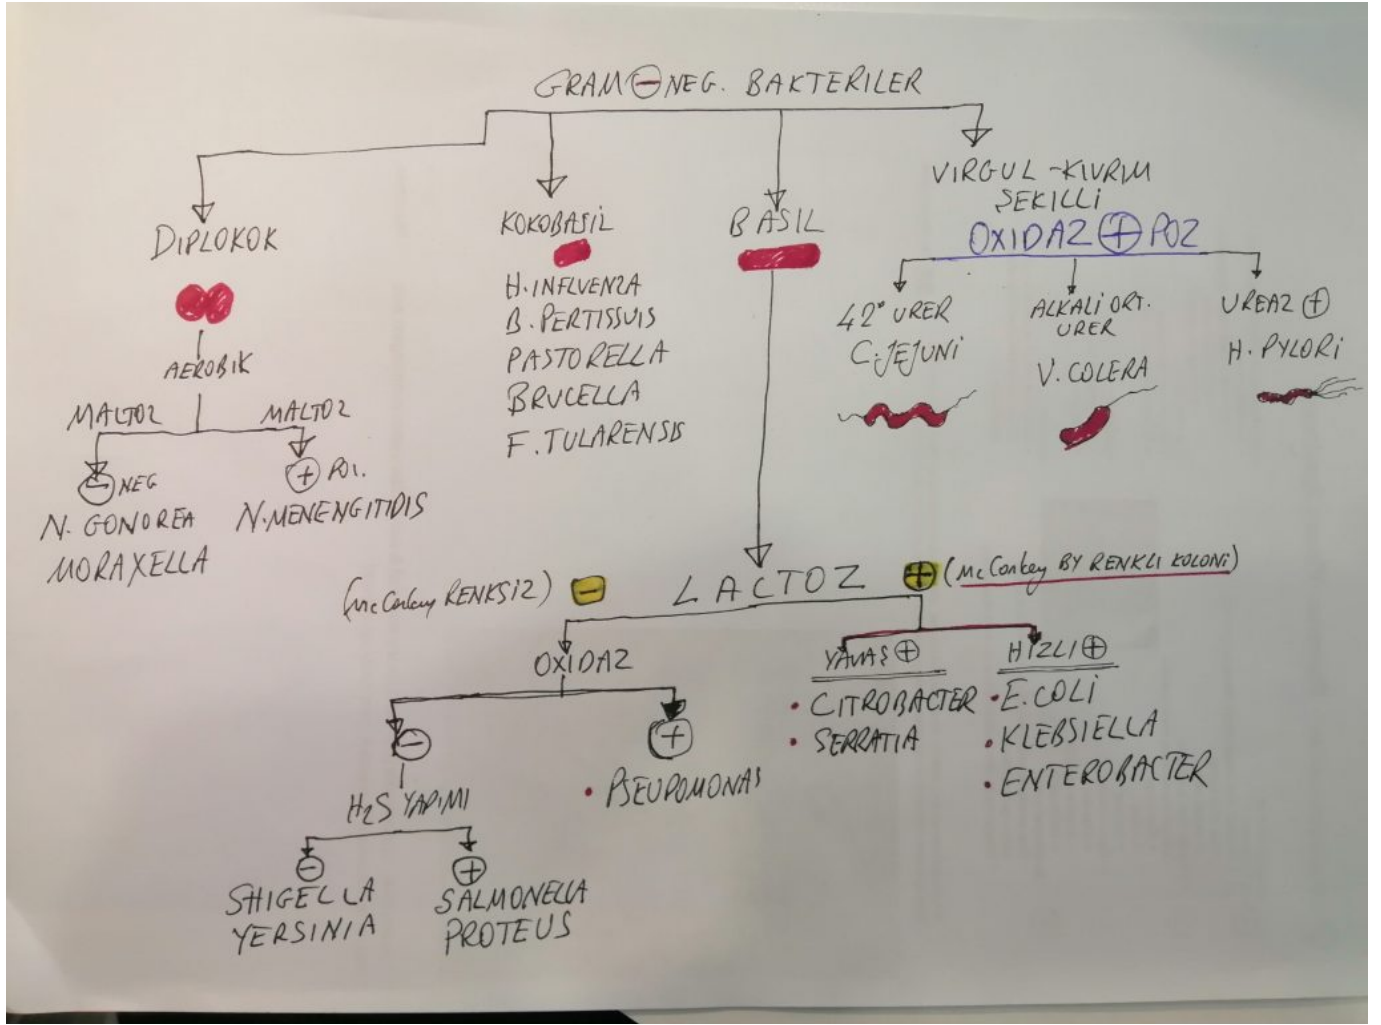 GRAM ⊖ NEG. BAKTERILER
DIPLOKOK
AEROBIK
MALTOZ
MALTOZ
⊖ NEG
N. GONOREA
MORAXELLA
⊕ POZ.
N. MENENGITIDIS
KOKOBASIL
H. INFLUENZA
B. PERTISSUIS
PASTORELLA
BRUCELLA
F. TULARENSIS
BASIL
VIRGUL - KIVRIM
ŞEKILLI
OXIDAZ ⊕ POZ
42° URER
C. JEJUNI
ALKALI ORT.
URER
V. COLERA
UREAZ ⊕
H. PYLORI
(McConkey RENKSIZ) ⊖ LACTOZ ⊕ (McConkey BY RENKLI KOLONI)
OXIDAZ
⊖
H2S YAPIMI
⊖
SHIGELLA
YERSINIA
⊕
SALMONELLA
PROTEUS
⊕
• PSEUDOMONAS
YAVAŞ ⊕
• CITROBACTER
• SERRATIA
HIZLI ⊕
• E. COLİ
• KLEBSIELLA
• ENTEROBACTER